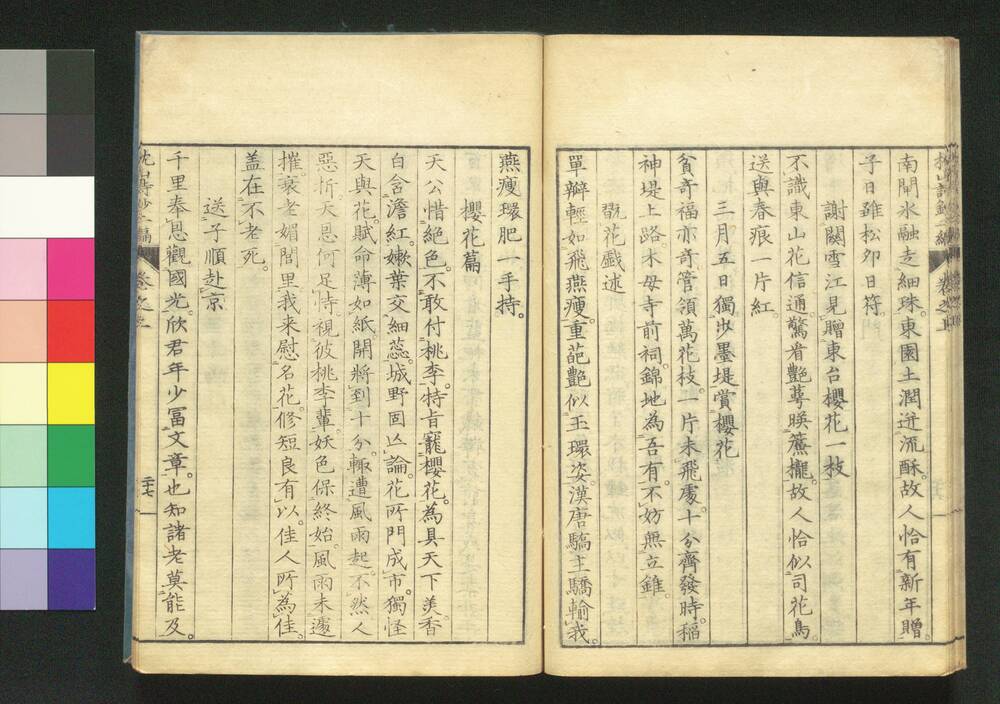 南閘氷融支細珠。東園土潤迸流酥。故人恰有新年贈。
子日雖松夘日符。
謝關雪江見贈東台櫻花一枝
不識東山花信通。驚看艷萼暎簾櫳。故人恰似司花鳥。
送與春痕一片紅。
三月五日獨步墨堤賞櫻花
貧奇福亦奇。管領萬花枝。一片未飛處。十分齊發時。稲
神堤上路。木母寺前祠。錦地為吾有。不妨無立錐。
翫花戲述
單瓣輕如飛燕瘦。重葩艷似玉環姿。漢唐驕主驕輸我。
燕瘦環肥一手持。
櫻花篇
天公惜絕色。不敢付桃李。特旨寵櫻花。為具天下美。香
白含澹紅。嫩葉交細蕊。城野固亾論。花所門成市。獨怪
天與花。賦命薄如紙。開將到十分。輙遭風雨起。不然人
惡折。天恩何足恃。視彼桃李輩。妖色保終始。風雨未遽
摧。衰老媚閭里。我来慰名花。修短良有以。佳人所為佳。
盖在不老死。
送子順赴京
千里奉恩觀國光。欣君年少冨文章。也知諸老莫能及。
二十七